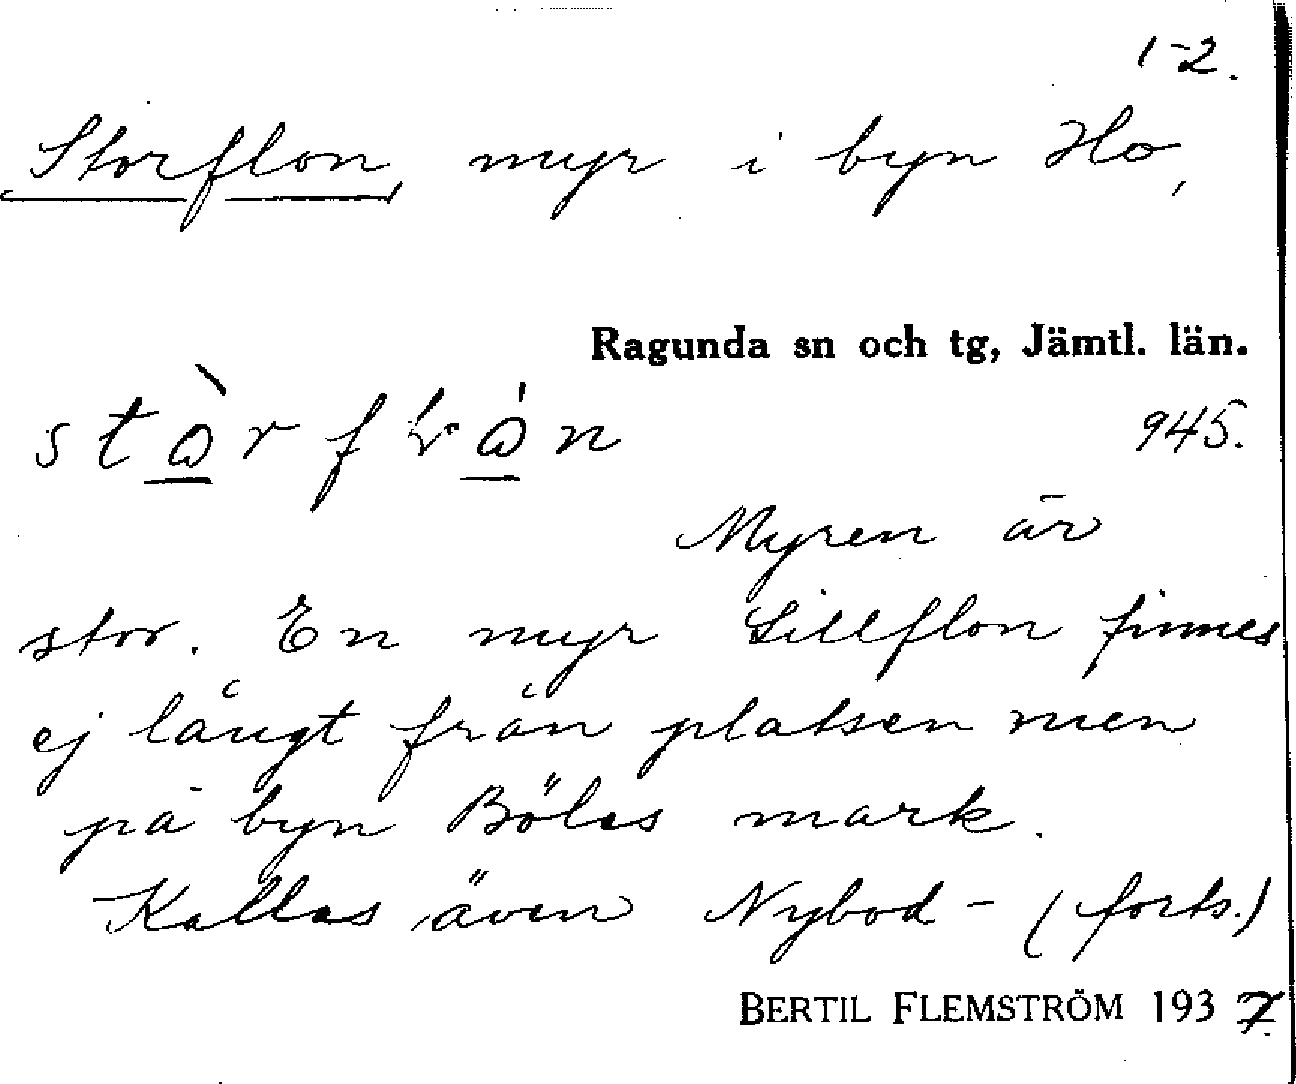 1-2.
Storflon, myr i byn Ho,
Ragunda sn och tg, Jämtl. län.
945.
Myren är
stor. En myr Lillflon finnes
ej långt från platsen men
på byn Böles mark.
Kallas även Nybod- (forts.)
BERTIL FLEMSTRÖM 1937